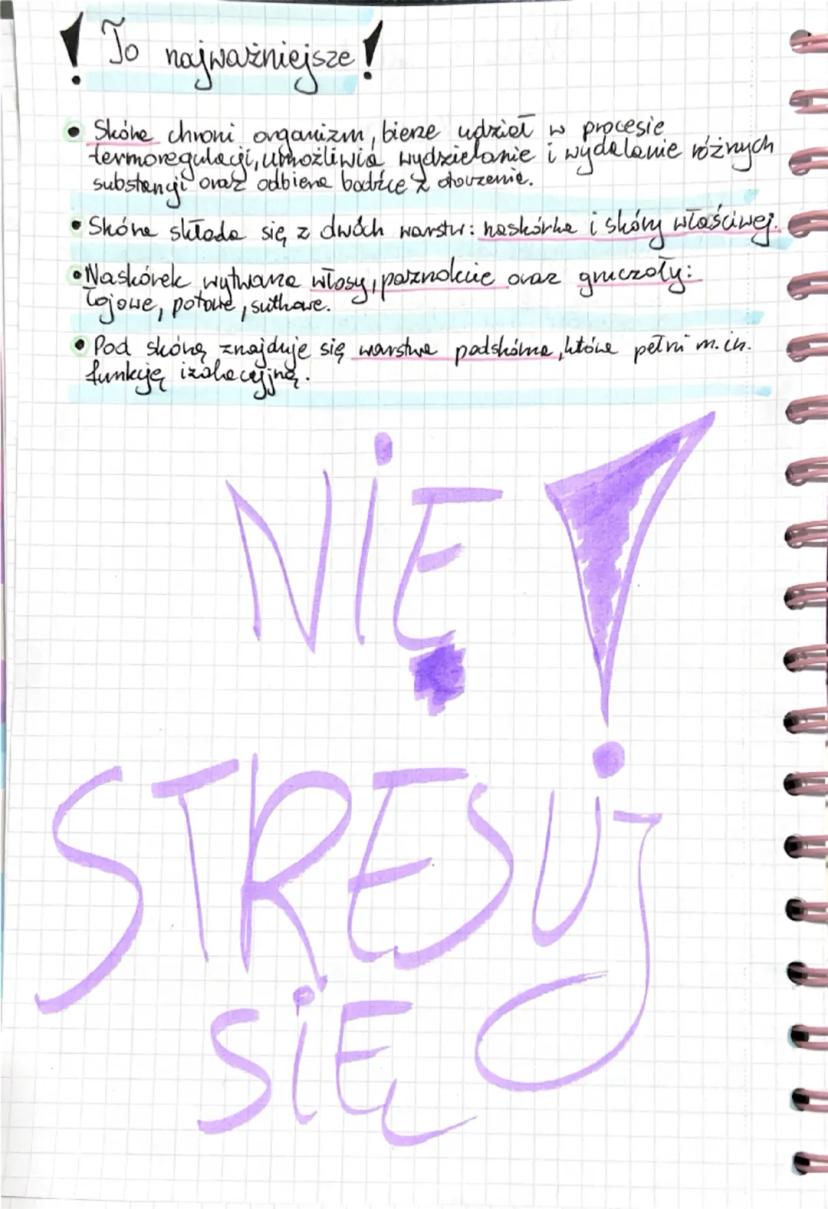 ! To najważniejsze !
• Skóra chroni organizm, bierze udział w procesie
termoregulacji, umożliwia wydzielanie i wydalanie różnych
substancji oraz odbiera bodźce z otoczenia.
• Skóra składa się z dwóch warstw: naskórka i skóry właściwej.
• Naskórek wytwarza włosy, paznokcie oraz gruczoły:
łojowe, potowe, sutkowe.
• Pod skórą znajduje się warstwa podskórna, która pełni m.in.
funkcję izolacyjną.
NIE !
STRESUJ
SIĘ